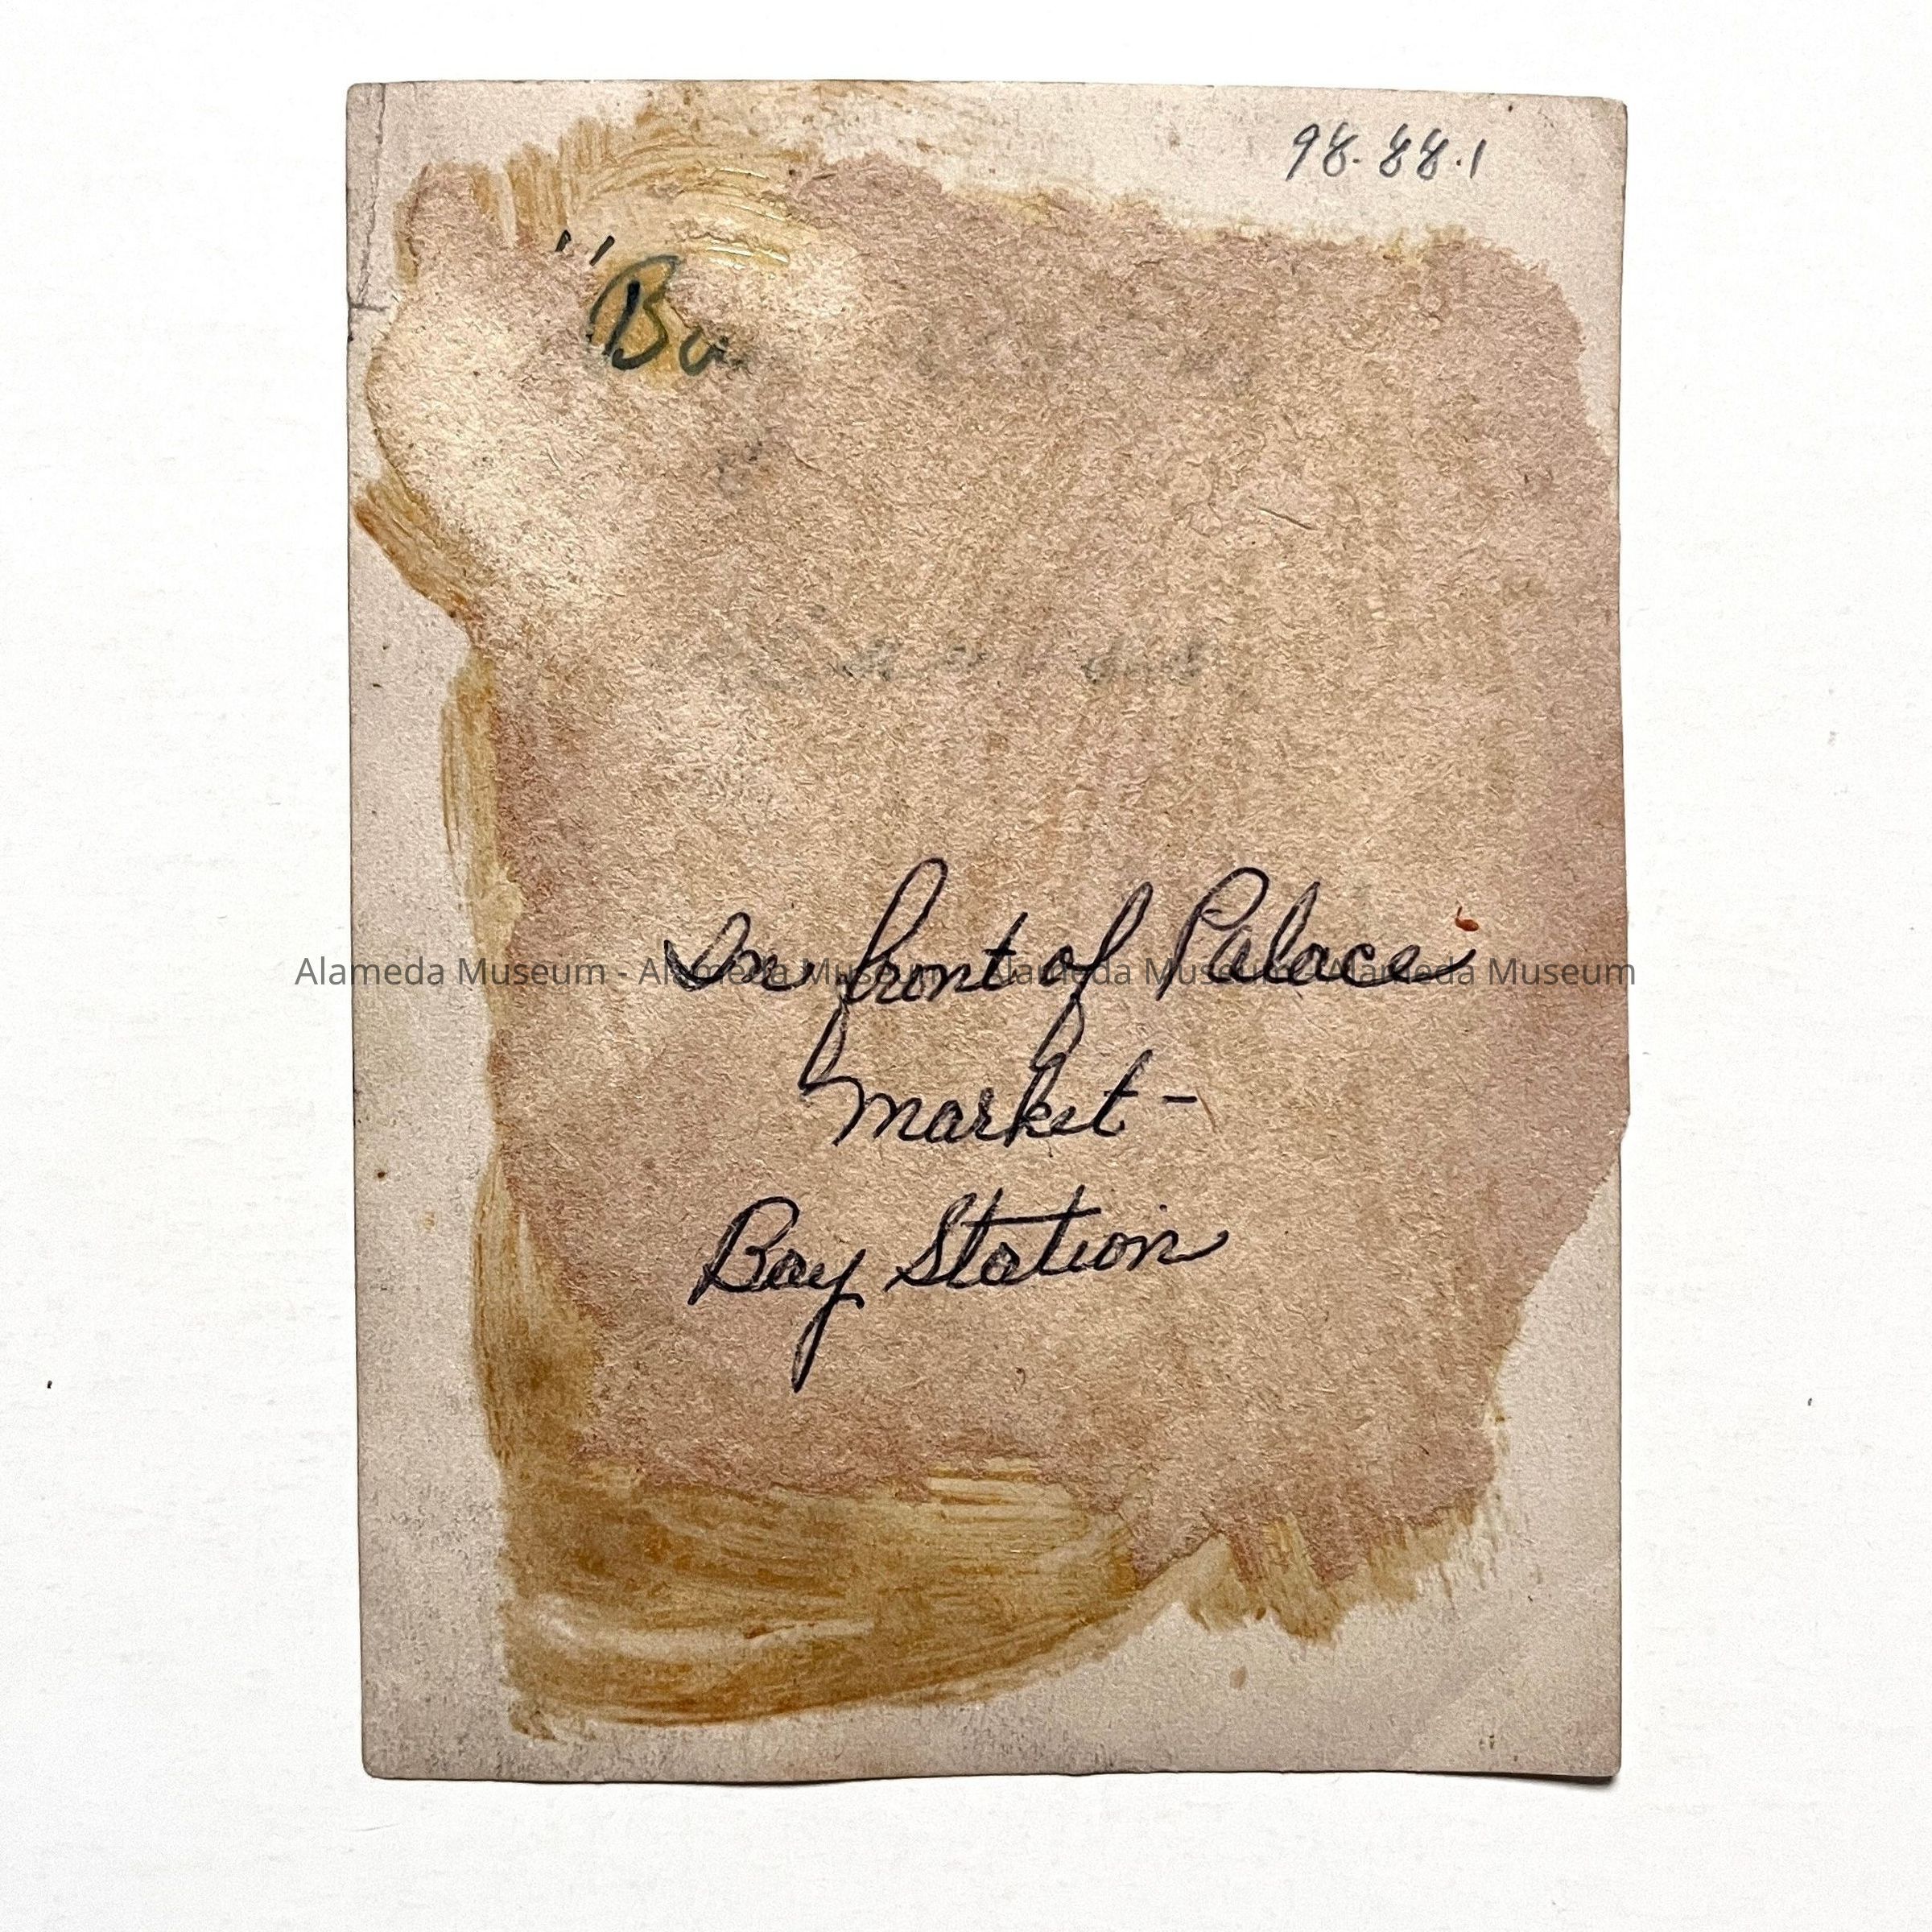 98.88.1
In front of Palace
Market -
Bay Station
Alameda Museum - Alameda Museum - Alameda Museum - Alameda Museum